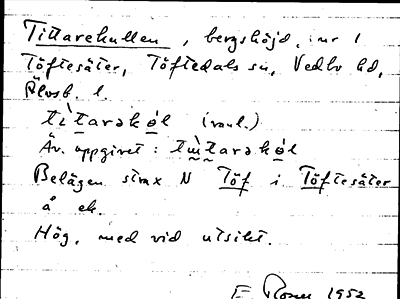 Tittarekullen, bergshöjd, inr 1
Töftesäter, Töftedals sn, Vedbo hd,
Älvsb. l.
tìtarəkól (vanl.)
Äv. uppgivet: tìtarəkól
Belägen strax N Töf i Töftesäter
å ek.
Hög, med vid utsikt.
E 1952